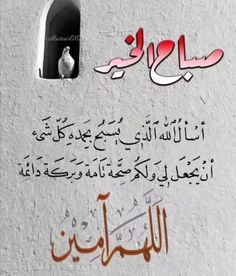 صباح الخير
أسأل الله الَّذِي يُسَبِّحُ بحَمدِهِ كُلّ شَيْء
أنْ يَجْعَل لِي وَلَكُم صِحَّة تَامَة وَبَرَكَة دَائِمَة
اللَّهُمَّ آمِين